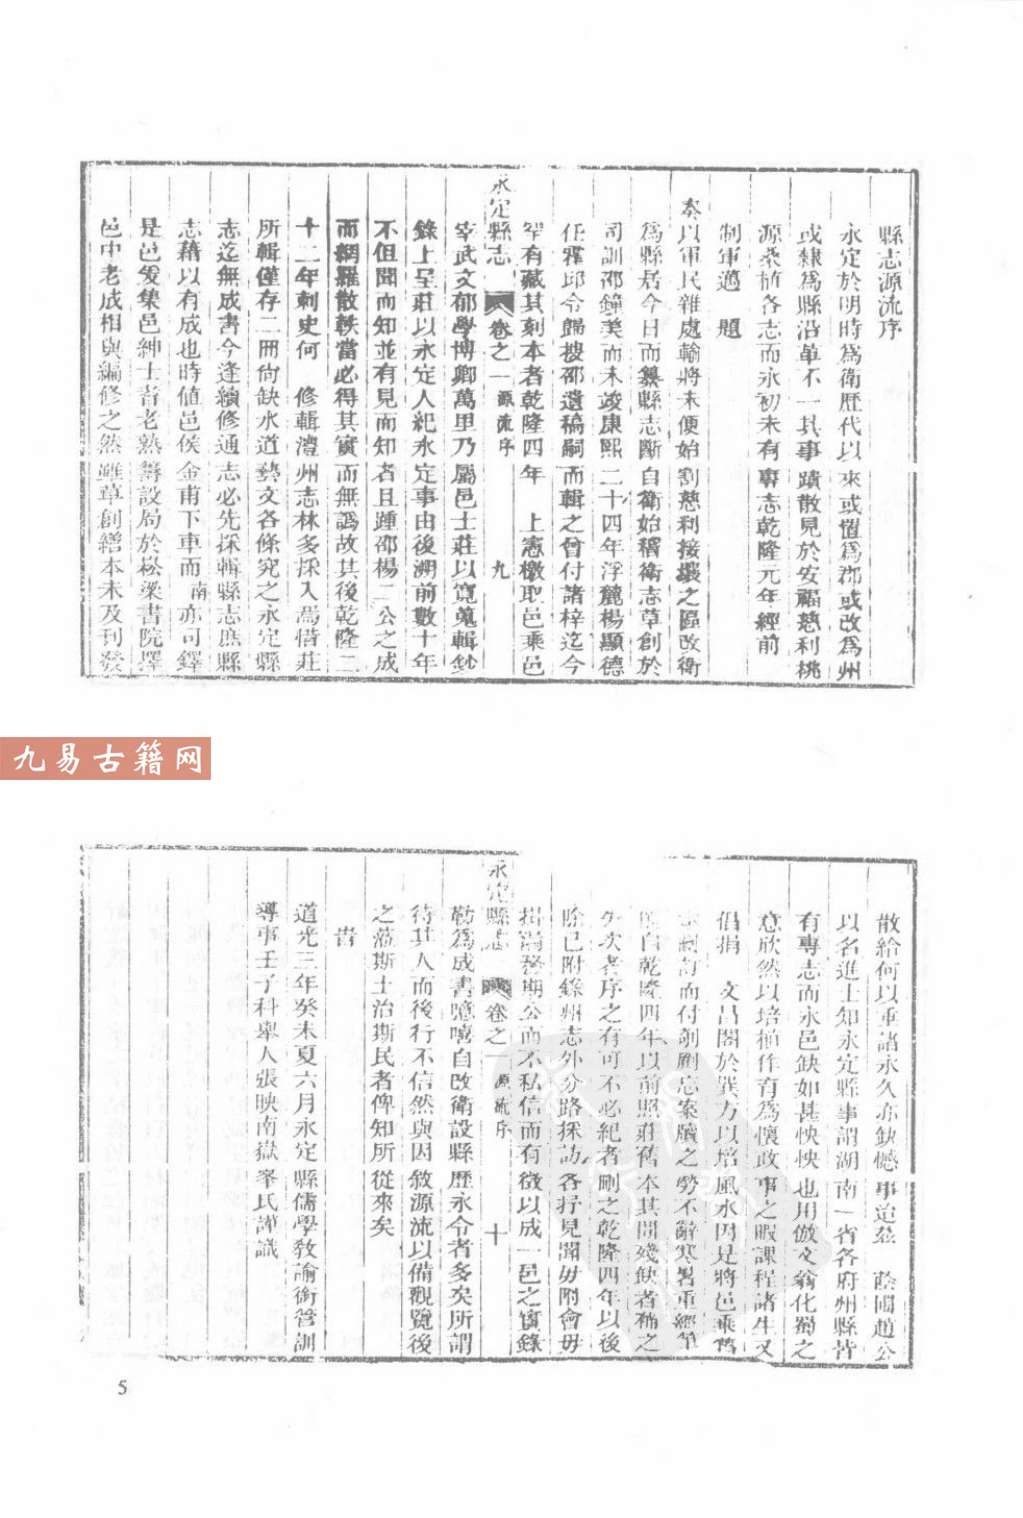 縣志源流序
永定於明時為衛歷代以來或置為郡或改為州
或隸為縣沿革不一其事蹟散見於安福慈利桃
源桑植各志而永初未有專志乾隆元年經前
制軍邁 題
奏以軍民雜處輸將未便始割慈利接壤之區改衛
為縣居今日而纂縣志斷自衛始稽衛志草創於
司訓邵鐘美而未竣康熙二十四年浮麓楊顯德
任霍邱令歸搜邵遺稿嗣而輯之曾付諸梓迄今
罕有藏其刻本者乾隆四年 上憲檄取邑乘邑
永定縣志 卷之一 源流序 九
宰武文郁學博卿萬里乃屬邑士莊以寬蒐輯鈔
錄上呈莊以永定人紀永定事由後溯前數十年
不但聞而知並有見而知者且踵邵楊二公之成
而網羅散軼當必得其實而無譌故其後乾隆二
十二年刺史何 修輯澧州志林多採入焉惜莊
所輯僅存二冊尚缺水道藝文各條究之永定縣
志迄無成書今逢續修通志必先採輯縣志庶縣
志藉以有成也時值邑侯金甫下車而南亦司鐸
是邑爰集邑紳士耆老熟籌設局於崧梁書院擇
邑中老成相與編修之然雖草創繕本未及刊發
九易古籍网
散給何以垂諸永久亦缺憾事迨茲 蔭圃趙公
以名進士知永定縣事謂湖南一省各府州縣皆
有專志而永邑缺如甚怏怏也用倣文翁化蜀之
意欣然以培植作育為懷政事之暇課程諸生又
倡捐 文昌閣於巽方以培風水因是將邑乘舊
訂而付剞劂忘案牘之勞不辭寒暑重經筆
自乾隆四年以前照莊舊本其間殘缺者補之
失次者序之有可不必紀者刪之乾隆四年以後
除已附錄州志外分路採訪各抒見聞毋附會毋
掛漏務期公而不私信而有徵以成一邑之實錄
永定縣志 卷之一 源流序 十
勒為成書噫嘻自改衛設縣歷永令者多矣所謂
待其人而後行不信然與因敘源流以備觀覽後
之蒞斯土治斯民者俾知所從來矣
旹
道光三年癸未夏六月永定縣儒學教諭銜管訓
導事壬子科舉人張映南嶽峯氏謹識
5